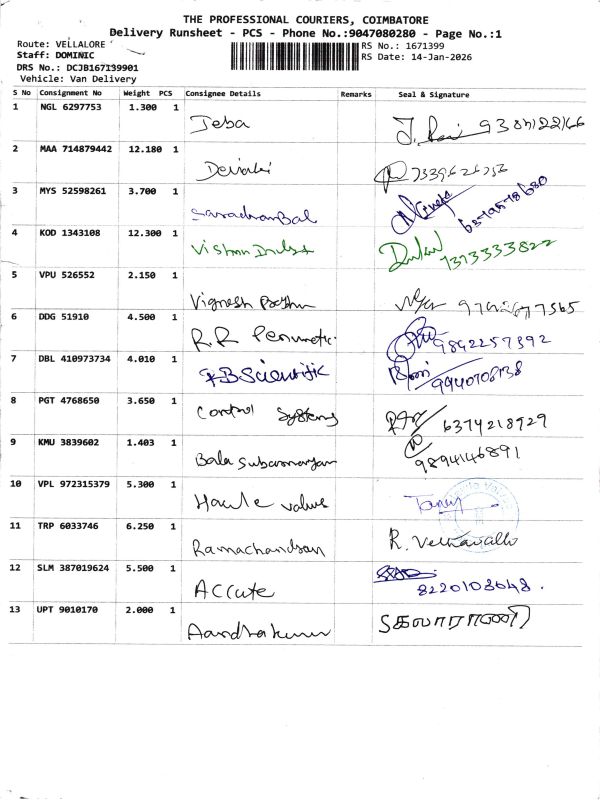 THE PROFESSIONAL COURIERS, COIMBATORE
Delivery Runsheet - PCS - Phone No.:9047080280 - Page No.:1
Route: VELLALORE
Staff: DOMINIC
DRS No.: DCJB167139901
Vehicle: Van Delivery
RS No.: 1671399
RS Date: 14-Jan-2026
S No Consignment No Weight PCS Consignee Details Remarks Seal & Signature
1 NGL 6297753 1.300 1
Jeba
2 MAA 714879442 12.180 1
3 MYS 52598261 3.700 1
4 KOD 1343108 12.300 1
7373333822
5 VPU 526552 2.150 1
Vignesh
6 DDG 51910 4.500 1
R.R 9842257392
7 DBL 410973734 4.010 1
Scientific
8 PGT 4768650 3.650 1
Control Systems 6374218929
9 KMU 3839602 1.403 1
9894146891
10 VPL 972315379 5.300 1
Haule valves
11 TRP 6033746 6.250 1
Ramachandran R.
12 SLM 387019624 5.500 1
Accute 8220108648.
13 UPT 9010170 2.000 1
கலாராணி